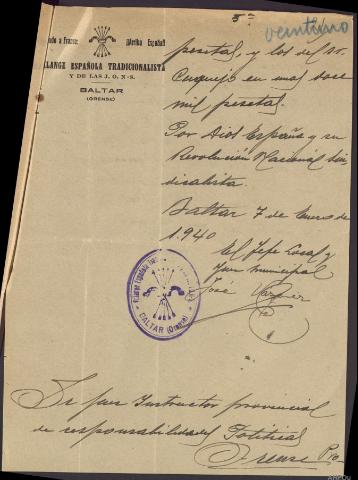 5ª
veintiuno
¡Arriba España!
ESPAÑOLA TRADICIONALISTA
Y DE LAS J. O. N-S.
BALTAR
(ORENSE)
pesetas, y los del sr.
en unas doce
mil pesetas.
Por Dios España y su
Revolución Nacional Sin-
dicalista.
Baltar 7 de Enero de
1.940
El Jefe Local y
Juez municipal
José
BALTAR (Orense)
Sr Juez Instructor provincial
de responsabilidades Políticas
Orense